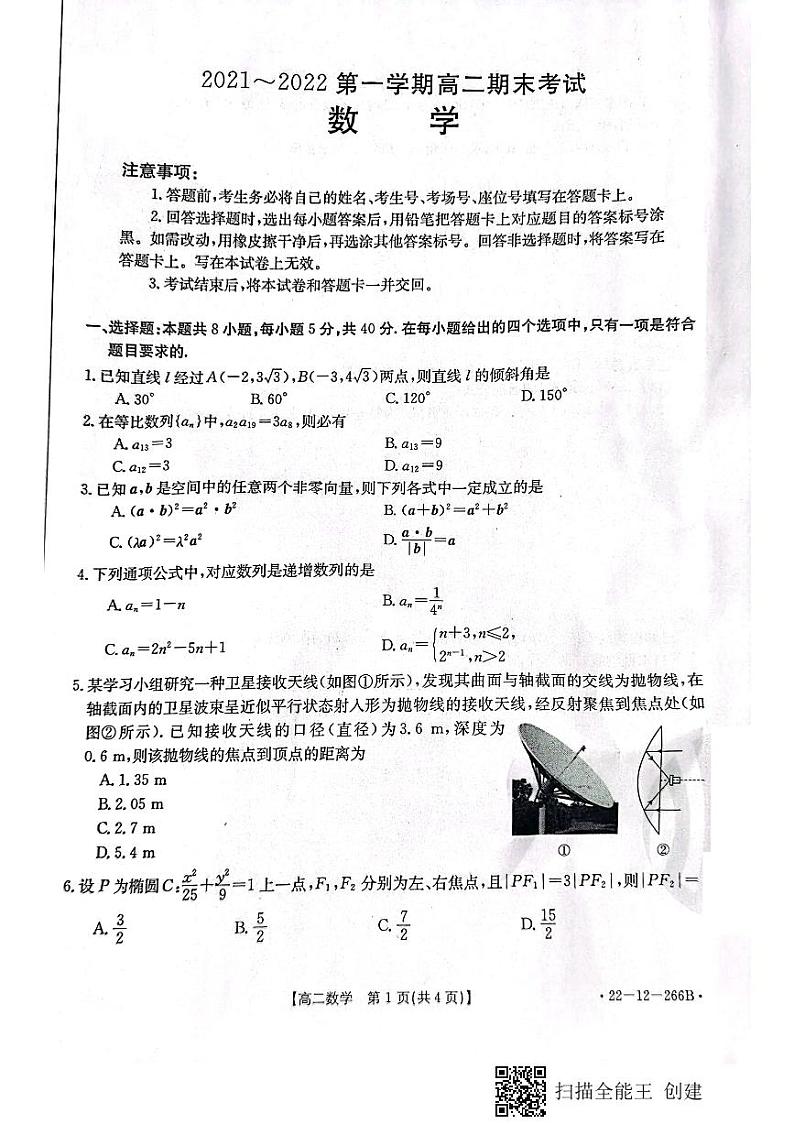 2021～2022 第一学期高二期末考试
数 学
注意事项：
1. 答题前,考生务必将自己的姓名、考生号、考场号、座位号填写在答题卡上。
2. 回答选择题时,选出每小题答案后,用铅笔把答题卡上对应题目的答案标号涂
黑。如需改动,用橡皮擦干净后,再选涂其他答案标号。回答非选择题时,将答案写在
答题卡上。写在本试卷上无效。
3. 考试结束后,将本试卷和答题卡一并交回。
一、选择题:本题共 8 小题,每小题 5 分,共 40 分. 在每小题给出的四个选项中,只有一项是符合
题目要求的.
1. 已知直线 l 经过 A(−2,3√3),B(−3,4√3)两点,则直线 l 的倾斜角是
A. 30° B. 60° C. 120° D. 150°
2. 在等比数列{aₙ}中,a₂a₁₉=3a₈,则必有
A. a₁₃=3 B. a₁₃=9
C. a₁₂=3 D. a₁₂=9
3. 已知 a,b 是空间中的任意两个非零向量,则下列各式中一定成立的是
A. (a·b)²=a²·b² B. (a+b)²=a²+b²
C. (λa)²=λ²a² D. a·b/|b|=a
4. 下列通项公式中,对应数列是递增数列的是
A. aₙ=1−n B. aₙ=1/4ⁿ
C. aₙ=2n²−5n+1 D. aₙ={n+3,n≤2, 2ⁿ⁻¹,n>2
5. 某学习小组研究一种卫星接收天线(如图①所示),发现其曲面与轴截面的交线为抛物线,在
轴截面内的卫星波束呈近似平行状态射人形为抛物线的接收天线,经反射聚焦到焦点处(如
图②所示). 已知接收天线的口径(直径)为 3.6 m,深度为
0.6 m,则该抛物线的焦点到顶点的距离为
A. 1.35 m
B. 2.05 m
C. 2.7 m
D. 5.4 m
① ②
6. 设 P 为椭圆 C:x²/25+y²/9=1 上一点,F₁,F₂ 分别为左、右焦点,且|PF₁|=3|PF₂|,则|PF₂|=
A. 3/2 B. 5/2 C. 7/2 D. 15/2
【高二数学 第 1 页(共 4 页)】 ·22-12-266B·
扫描全能王 创建